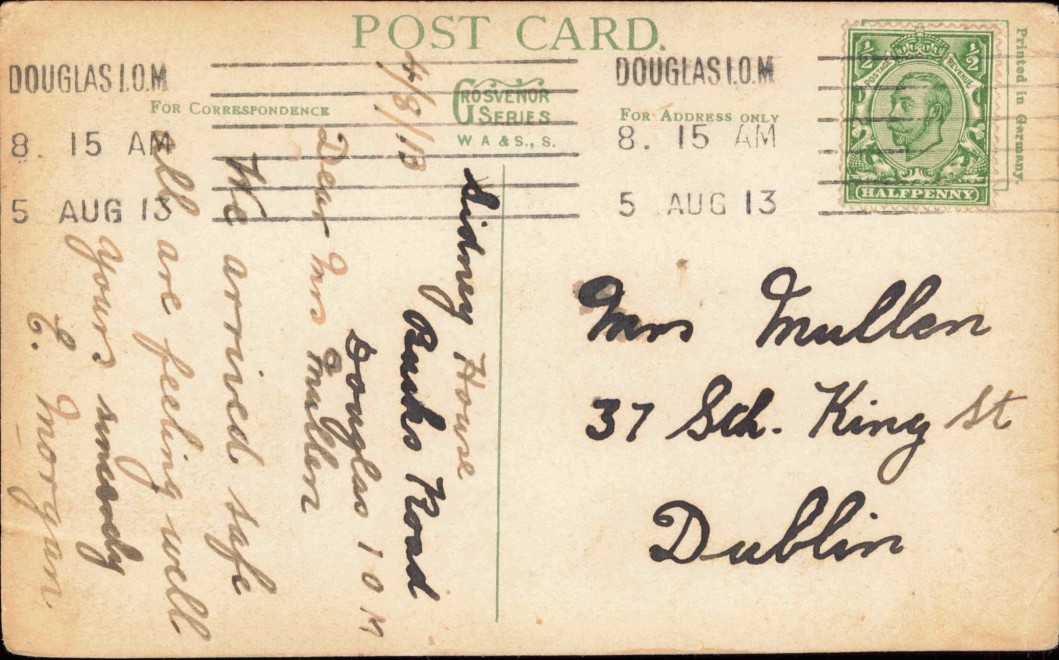 POST CARD.
DOUGLAS I.O.M
8. 15 AM
5 AUG 13
FOR CORRESPONDENCE
GROSVENOR
SERIES
W A & S., S.
DOUGLAS I.O.M
8. 15 AM
5 AUG 13
FOR ADDRESS ONLY
½ ½
POSTAGE REVENUE
HALFPENNY
Printed in Germany.
4/8/13
Sidney House
Bucks Road
Douglas I O M
Dear Mrs Mullen
We arrived safe
all are feeling well
yours sincerely
E. Morgan
Mrs Mullen
37 Sth. King St
Dublin